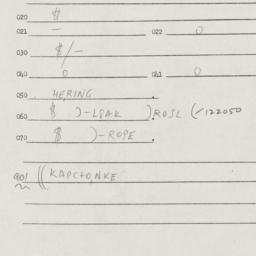 020 $
021 - 022 0
030 $/-
040 0 041 0
050 HERING
060 $ )-LSAK )ROSL (-122050
070 $ )-ROPE
901 ((KAPCHONKE